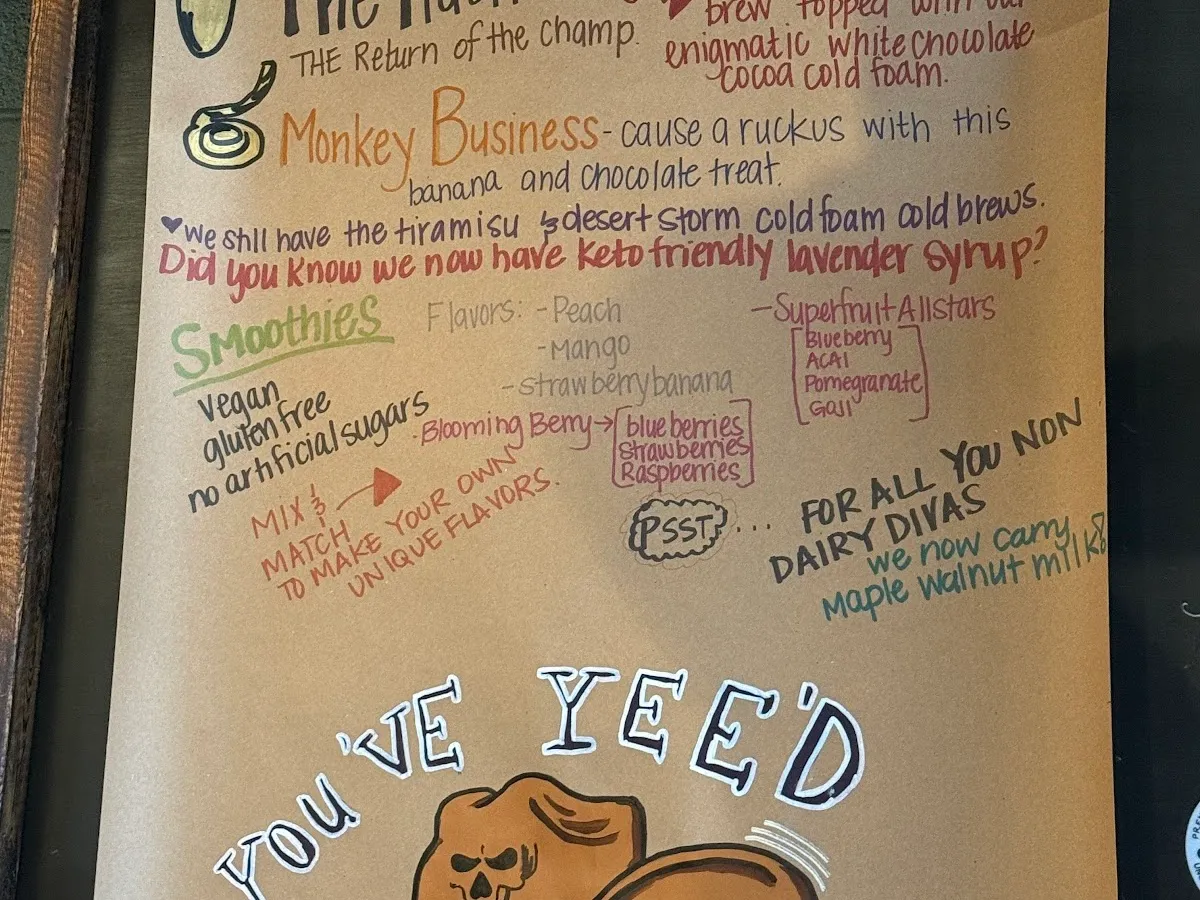 The
THE Return of the champ.
brew topped with our
enigmatic white chocolate
cocoa cold foam.
Monkey Business - cause a ruckus with this
banana and chocolate treat.
♥we still have the tiramisu & desert storm cold foam cold brews.
Did you know we now have keto friendly lavender syrup?
Smoothies
vegan
gluten free
no artificial sugars
Flavors: - Peach
- Mango
- strawberry banana
- Superfruit Allstars
[Blueberry
ACAI
Pomegranate
Goji]
· Blooming Berry → [blueberries
Strawberries
Raspberries]
MIX &
MATCH
TO MAKE YOUR OWN
UNIQUE FLAVORS.
PSST...
FOR ALL YOU NON
DAIRY DIVAS
we now carry
Maple walnut milk
YOU'VE YEE'D